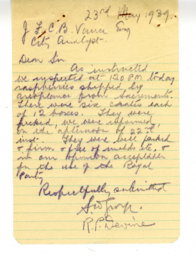 23rd May 1939.
J. F. C. B. Vance Esq
City Analyst.
Dear Sir
As instructed
we inspected at 1.20 PM today
raspberries shipped by
There were six crates each
of 12 boxes. They were
picked, we were informed,
on the afternoon of 22nd
inst. They were well packed
& firm & free of mould etc, &
in our opinion acceptable
for the use of the Royal
Party
Respectfully submitted
R. P. Devine